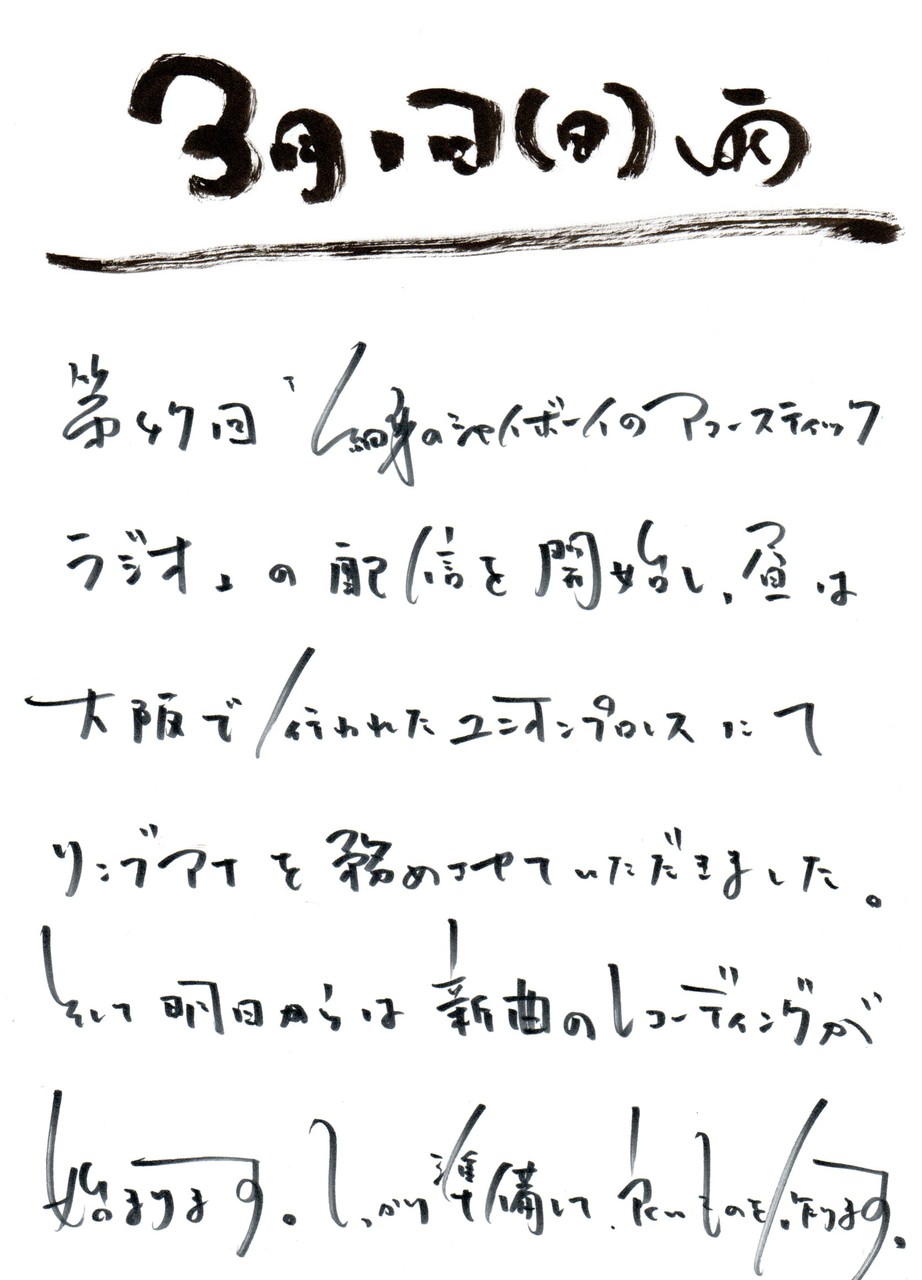 3月1日(日) 雨
第47回「細身のシャイボーイのアコースティック
ラジオ」の配信を開始し、昼は
大阪で行われたユニオンプロレスにて
リングアナを務めさせていただきました。
そして明日からは新曲のレコーディングが
始まります。しっかり準備して、良いものを作ります。